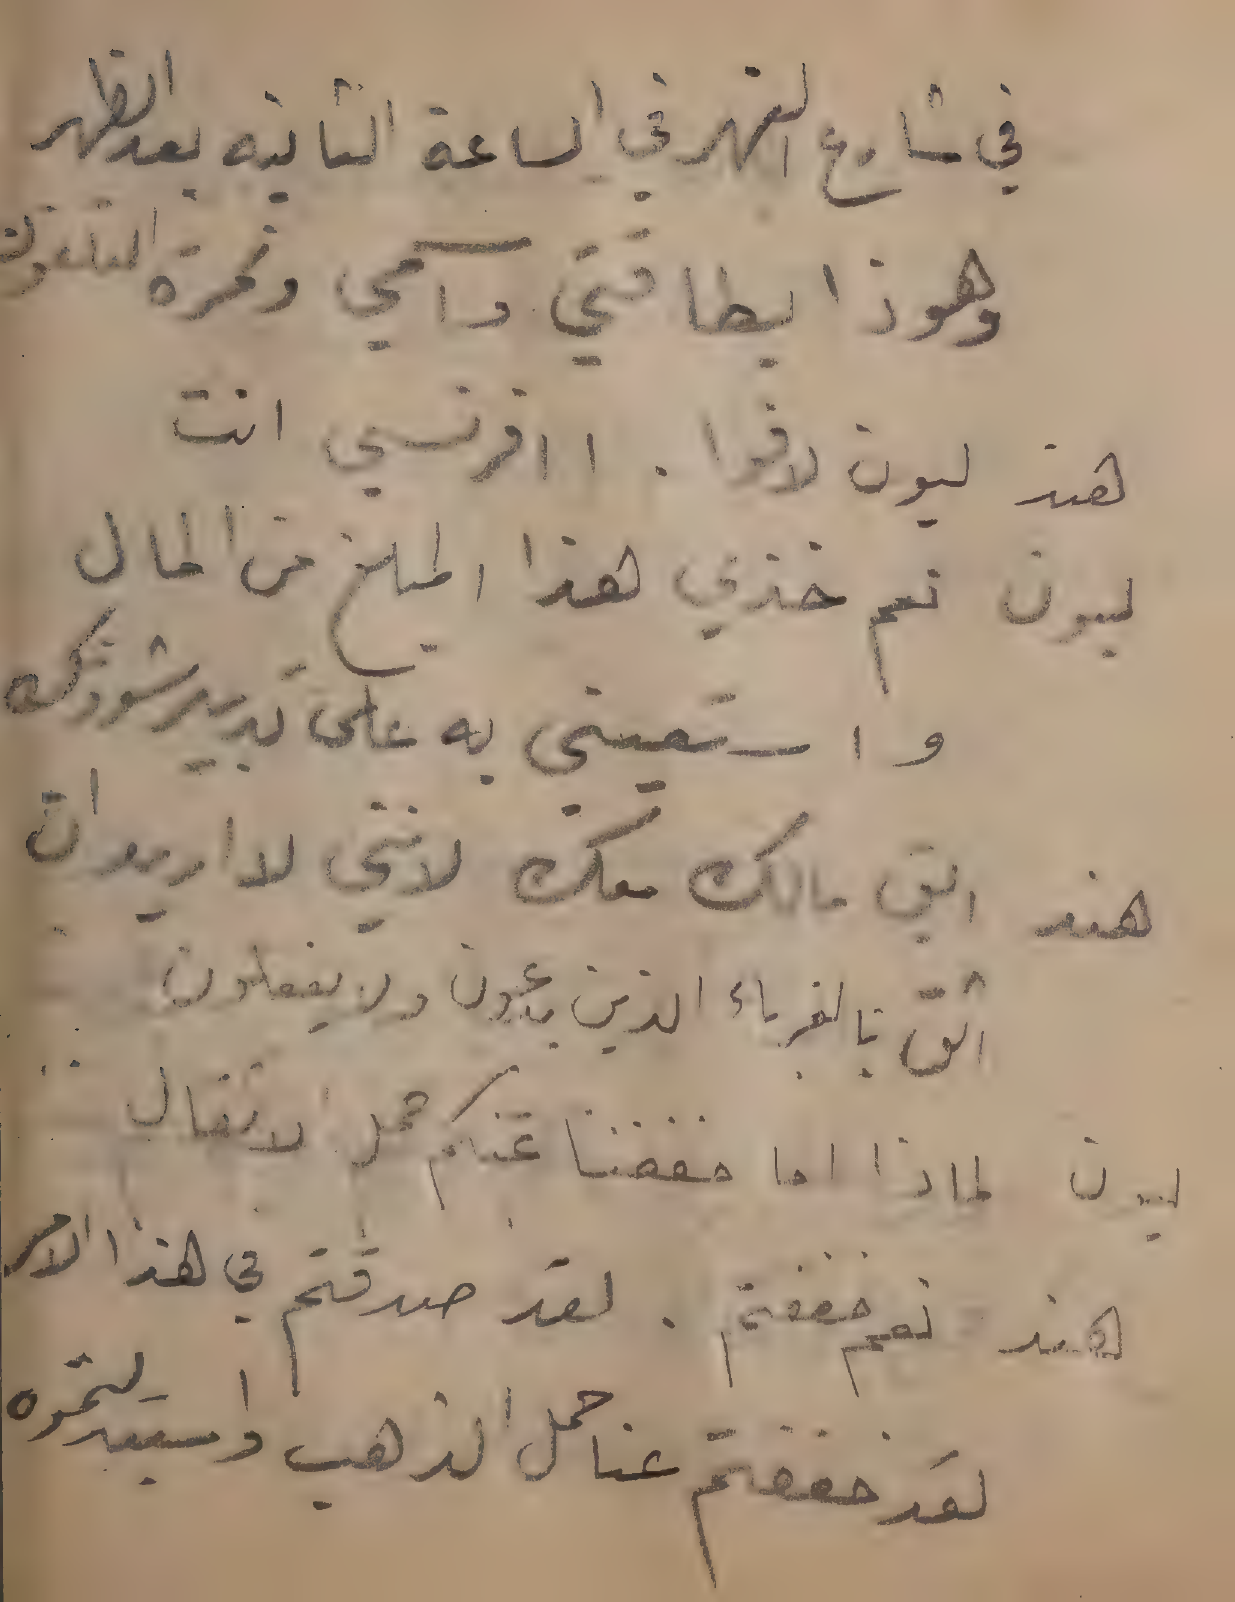 في شارع النهر في الساعة الثانيه بعد الظهر
وهوذا بطاقتي وآسمي ونمرة التلفون
هند ليون لافوا . اافرنسي انت
ليون نعم خذي هذا المبلغ من المال
واستعيني به على تدبير شوونك
هند ابق مالك معك لانني لا اريد ان
اثق بالغرباء الذين يدعون ولا يفعلون
ليون لماذا اما خففنا عنكم حمل الاثقال
هند نعم خففتم . لقد صدقتم في هذا الامر
لقد خففتم عنا حمل الذهب واستبدلتموه